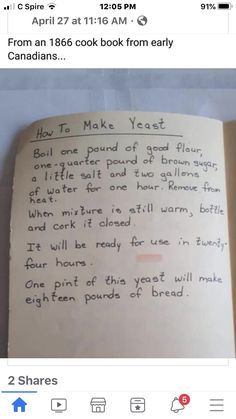 C Spire
12:05 PM
91%
April 27 at 11:16 AM ·
From an 1866 cook book from early
Canadians...
How To Make Yeast
Boil one pound of good flour,
one-quarter pound of brown sugar,
a little salt and two gallons
of water for one hour. Remove from
heat.
When mixture is still warm, bottle
and cork it closed.
It will be ready for use in twenty-
four hours.
One pint of this yeast will make
eighteen pounds of bread.
2 Shares
5